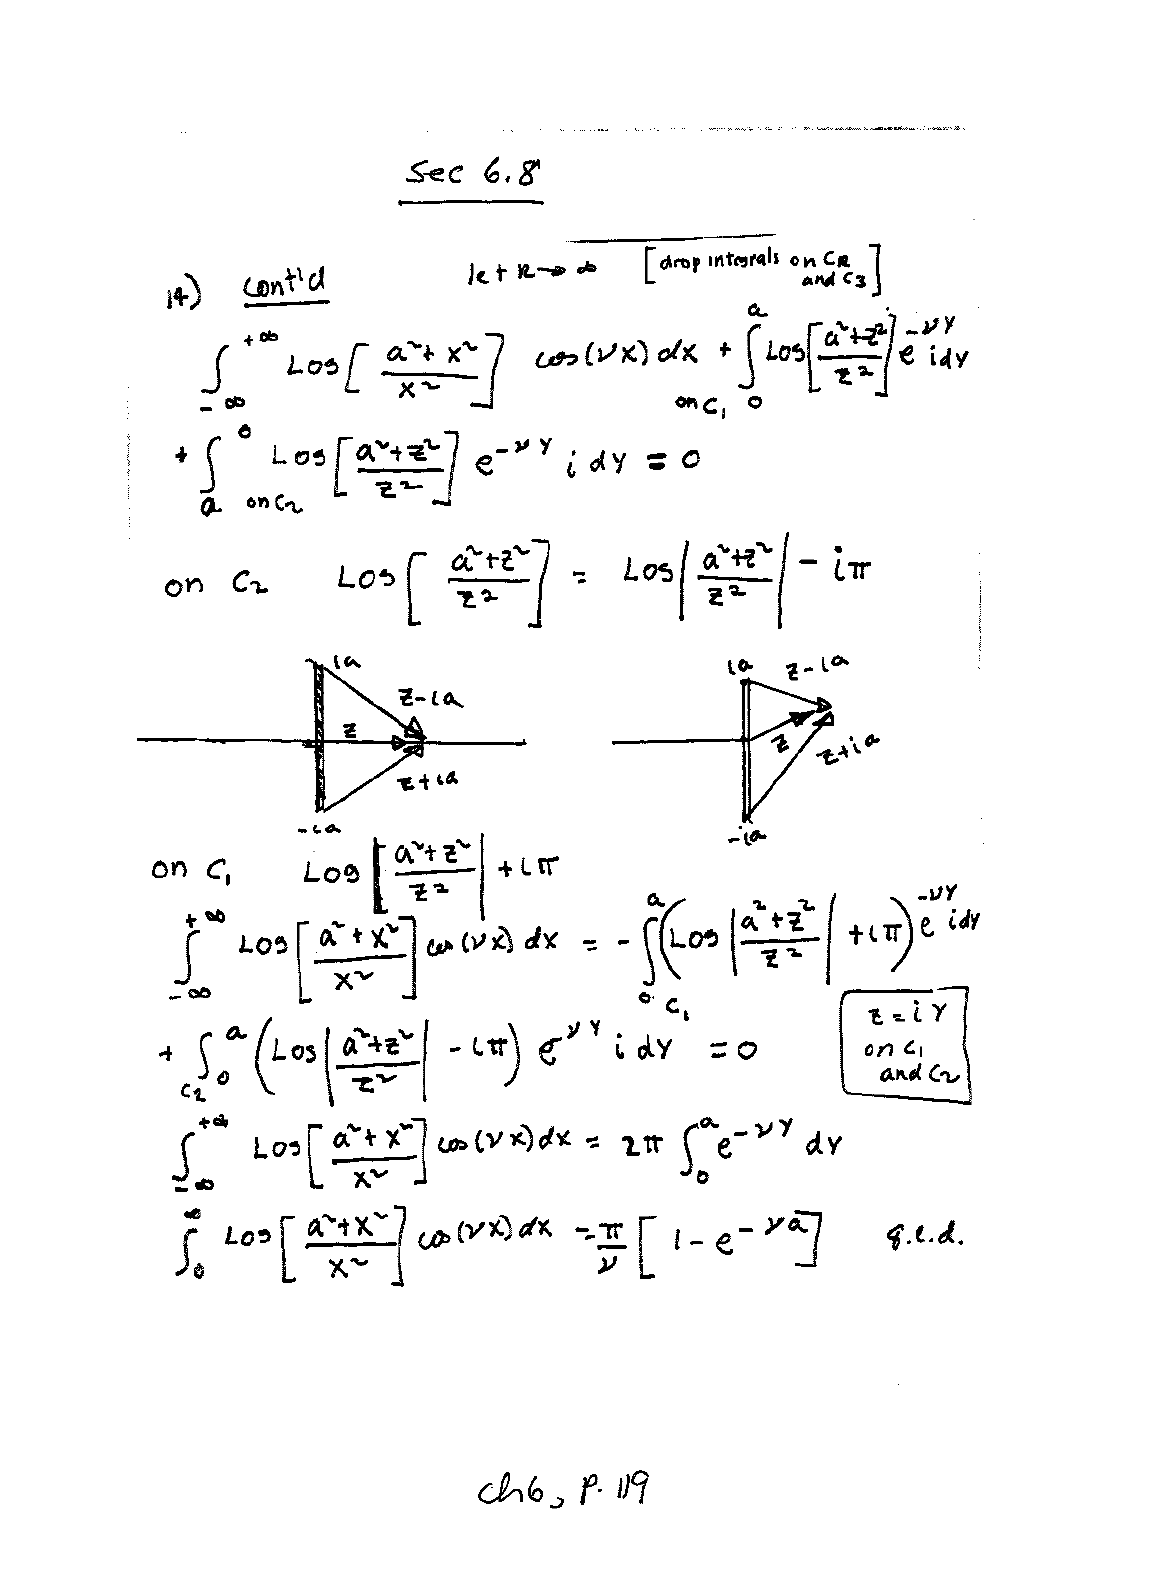 Sec 6.8
14) cont'd let R→∞ [drop integrals on CR and C3]
∫_{-∞}^{+∞} Log[(a²+x²)/x²] cos(νx) dx + ∫_0^a Log[(a²+z²)/z²] e^{-νy} i dy
on C₁
+ ∫_a^0 Log[(a²+z²)/z²] e^{-νy} i dy = 0
on C₂
on C₂ Log[(a²+z²)/z²] = Log|(a²+z²)/z²| - iπ
ia ia z-ia
z-ia
z z
z+ia z+ia
-ia -ia
on C₁ Log|(a²+z²)/z²| + iπ
∫_{-∞}^{+∞} Log[(a²+x²)/x²] cos(νx) dx = - ∫_0^a (Log|(a²+z²)/z²| + iπ) e^{-νy} i dy
C₁
+ ∫_0^a (Log|(a²+z²)/z²| - iπ) e^{νy} i dy = 0
C₂
z = iy
on C₁
and C₂
∫_{-∞}^{+∞} Log[(a²+x²)/x²] cos(νx) dx = 2π ∫_0^a e^{-νy} dy
∫_0^∞ Log[(a²+x²)/x²] cos(νx) dx = π/ν [1-e^{-νa}] q.e.d.
ch6, p. 119